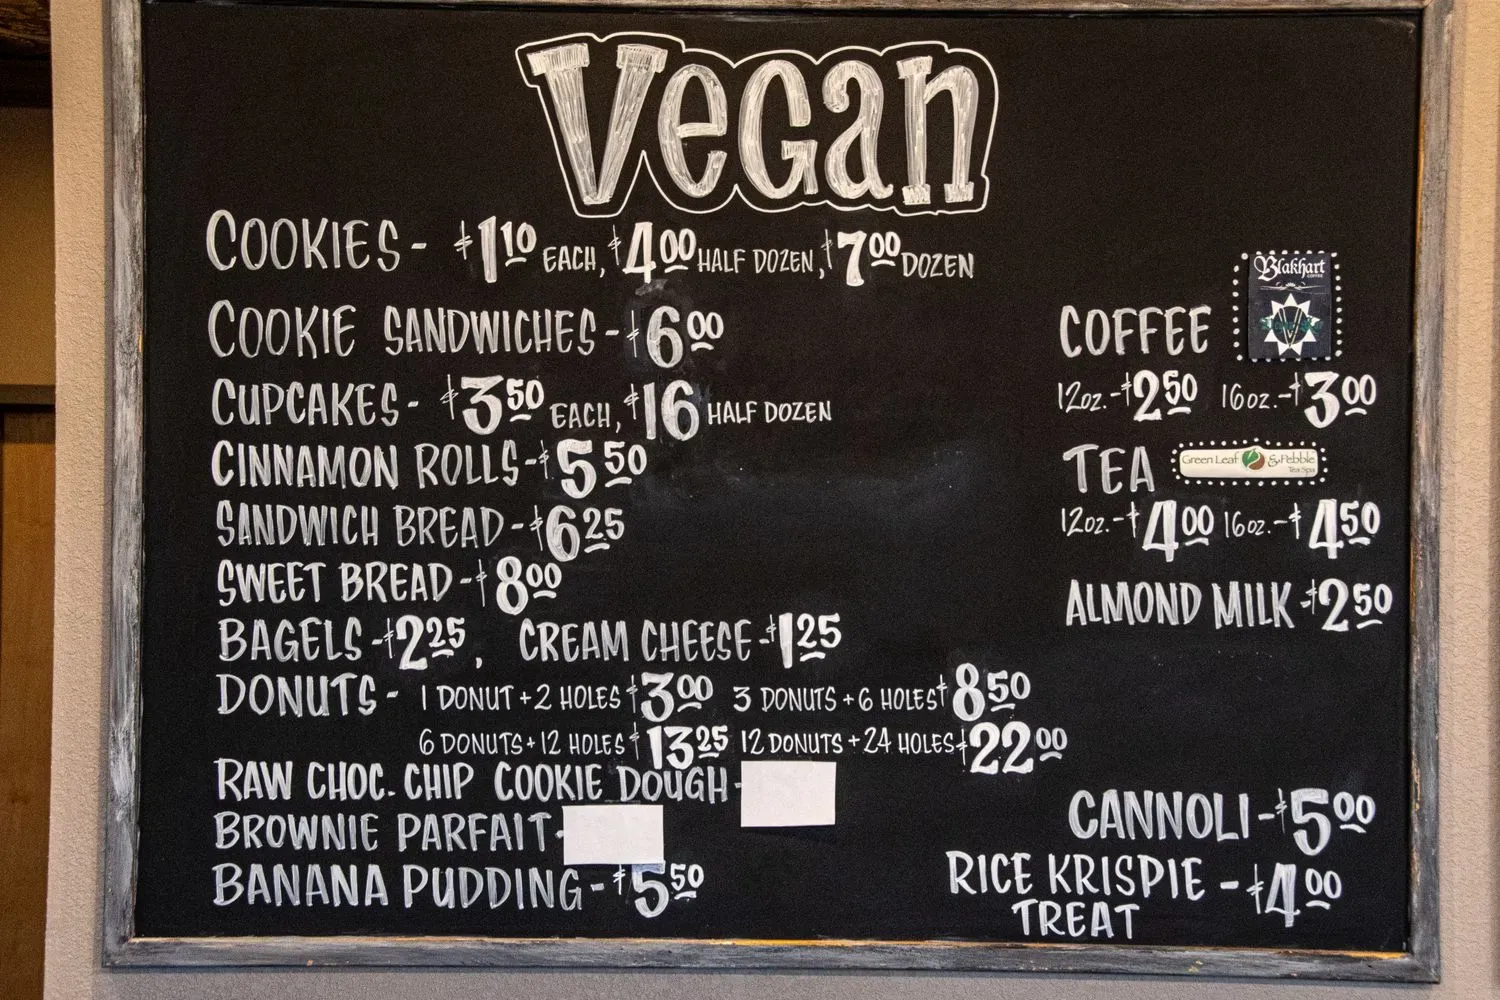 Vegan
COOKIES - $1.10 EACH, $4.00 HALF DOZEN, $7.00 DOZEN
COOKIE SANDWICHES - $6.00
CUPCAKES - $3.50 EACH, $16 HALF DOZEN
CINNAMON ROLLS - $5.50
SANDWICH BREAD - $6.25
SWEET BREAD - $8.00
BAGELS - $2.25, CREAM CHEESE - $1.25
DONUTS - 1 DONUT + 2 HOLES $3.00 3 DONUTS + 6 HOLES $8.50
6 DONUTS + 12 HOLES $13.25 12 DONUTS + 24 HOLES $22.00
RAW CHOC. CHIP COOKIE DOUGH -
BROWNIE PARFAIT -
BANANA PUDDING - $5.50
Blakhart
COFFEE
COFFEE
12oz. - $2.50 16oz. - $3.00
TEA
Green Leaf & Pebble
Tea Spa
12oz. - $4.00 16oz. - $4.50
ALMOND MILK - $2.50
CANNOLI - $5.00
RICE KRISPIE - $4.00
TREAT